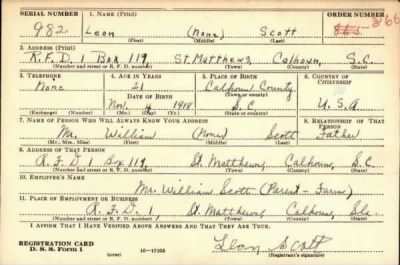 SERIAL NUMBER 1. NAME (Print) ORDER NUMBER
982 Leon (None) Scott 865 866
(First) (Middle) (Last)
2. ADDRESS (Print)
R.F.D. 1 Box 119, St. Matthews, Calhoun, S.C.
(Number and street or R. F. D. number) (Town) (County) (State)
3. TELEPHONE 4. AGE IN YEARS 5. PLACE OF BIRTH 6. COUNTRY OF CITIZENSHIP
None 21 Calhoun County
DATE OF BIRTH (Town or county)
Nov. 4 1918 S.C. U.S.A
(Exchange) (Number) (Mo.) (Day) (Yr.) (State or country)
7. NAME OF PERSON WHO WILL ALWAYS KNOW YOUR ADDRESS 8. RELATIONSHIP OF THAT PERSON
Mr. William (None) Scott Father
(Mr., Mrs., Miss) (First) (Middle) (Last)
9. ADDRESS OF THAT PERSON
R.F.D 1 Box 119, St. Matthews, Calhoun, S.C
(Number and street or R. F. D. number) (Town) (County) (State)
10. EMPLOYER'S NAME
Mr. William Scott (Parent - Farm)
11. PLACE OF EMPLOYMENT OR BUSINESS
R.F.D. 1, St. Matthews, Calhoun,
(Number and street or R. F. D. number) (Town) (County) (State)
I AFFIRM THAT I HAVE VERIFIED ABOVE ANSWERS AND THAT THEY ARE TRUE.
REGISTRATION CARD
D. S. S. Form 1 (over) 16—17105 Leon Scott
(Registrant's signature)